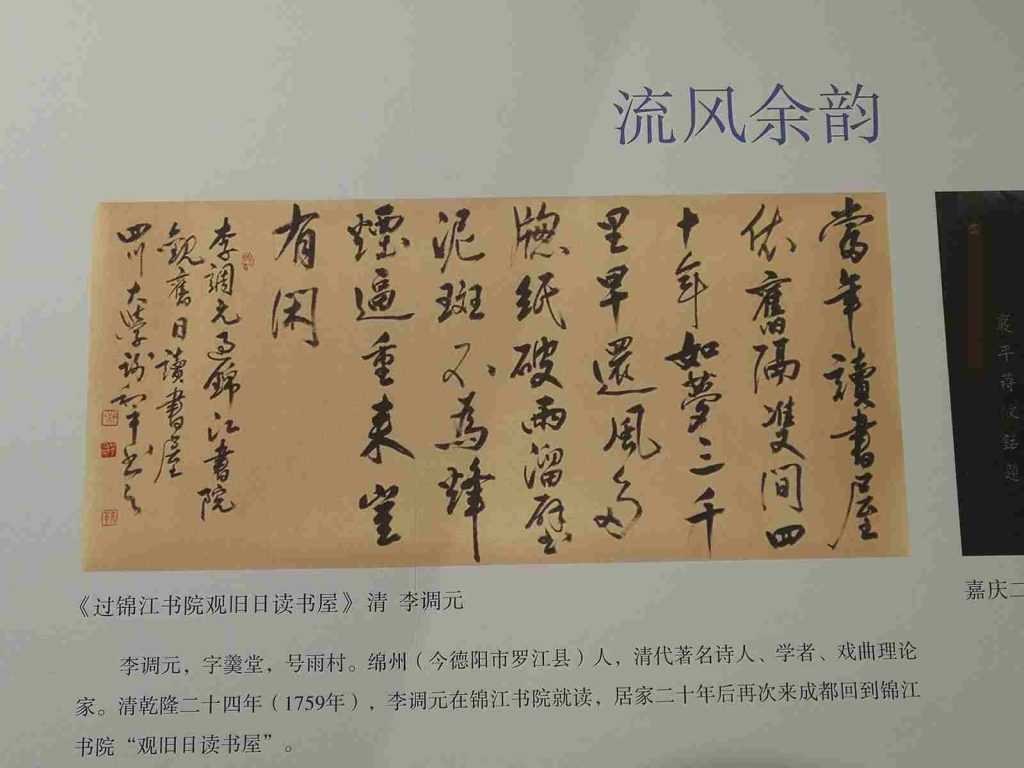 流风余韵
當年讀書屋
依舊隔雙間四
十年如夢三千
里早還風多
牕紙破雨溜壁
泥斑不為烽
煙逼重来豈
有閑
李調元過錦江書院
觀舊日讀書屋
四川大學謝和平书之
襄平蔣攸銛題
《过锦江书院观旧日读书屋》清 李调元
嘉庆二
李调元，字羹堂，号雨村。绵州（今德阳市罗江县）人，清代著名诗人、学者、戏曲理论
家。清乾隆二十四年（1759年），李调元在锦江书院就读，居家二十年后再次来成都回到锦江
书院“观旧日读书屋”。